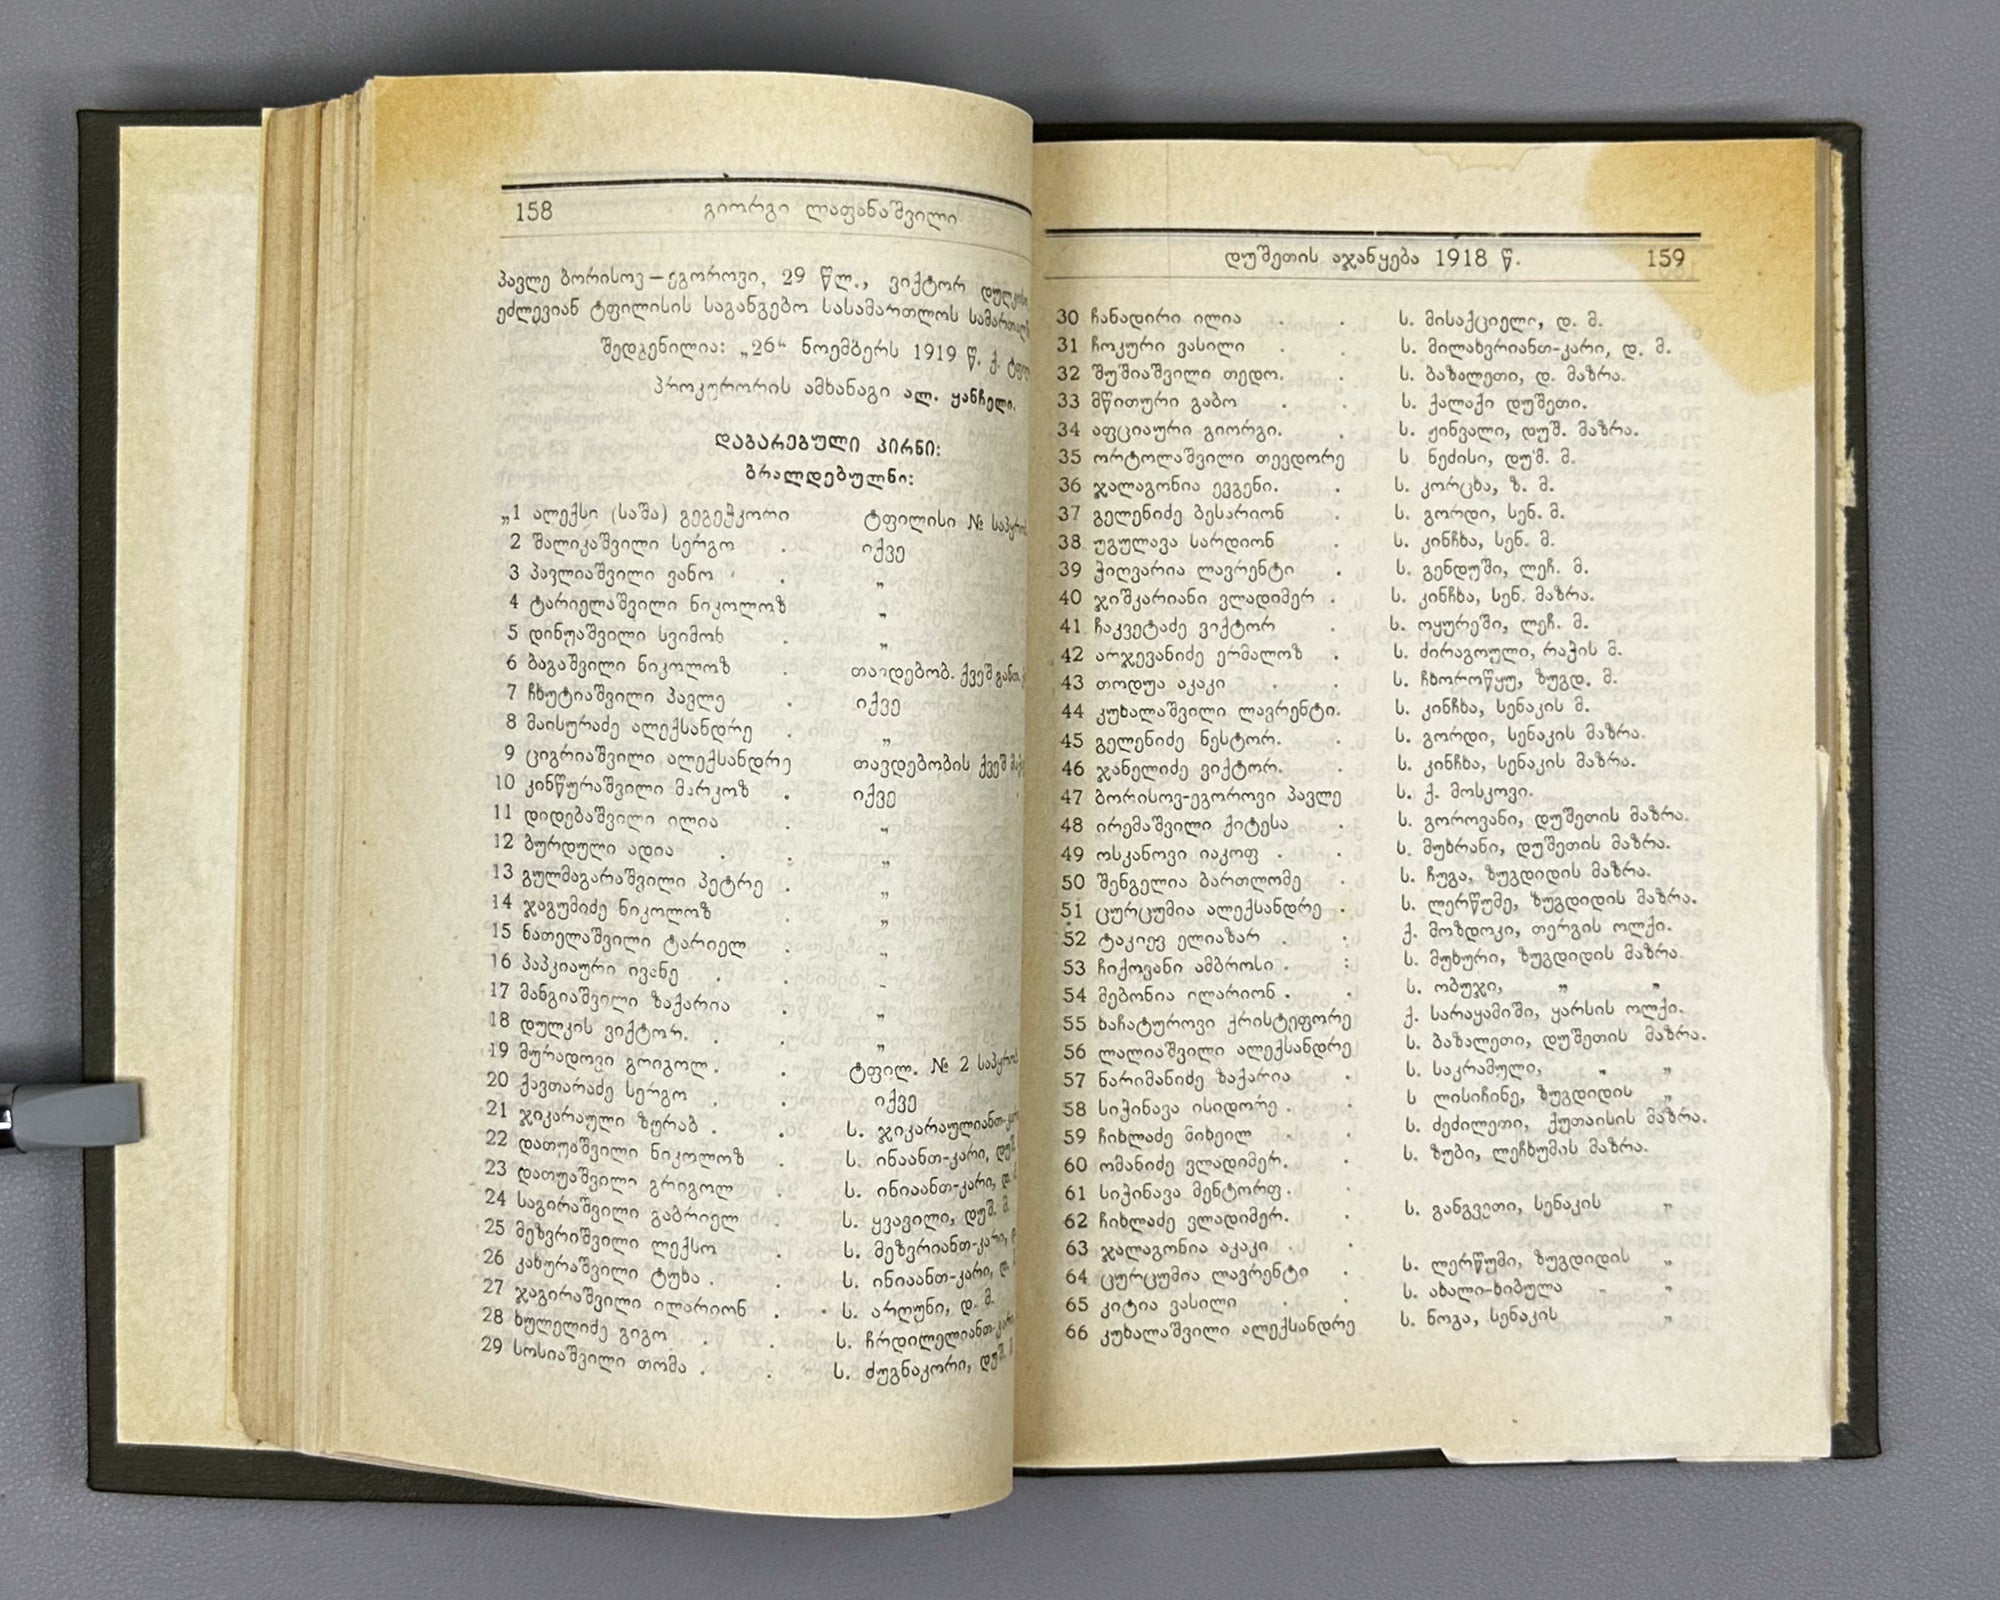 158 გიორგი ლაფანაშვილი
პავლე ბორისოვ—ეგოროვი, 29 წლ., ვიქტორ
ეძლევიან ტფილისის საგანგებო სასამართლოს
შედგენილია: „26“ ნოემბერს 1919 წ. ქ.
პროკურორის ამხანაგი ალ. ყანჩელი.
დაბარებული პირნი:
ბრალდებულნი:
„1 ალექსი (საშა) გეგეჭკორი ტფილისი №
2 შალიკაშვილი სერგო . იქვე
3 პავლიაშვილი ვანო . „
4 ტარიელაშვილი ნიკოლოზ „
5 დინუაშვილი სვიმონ . „
6 ბაგაშვილი ნიკოლოზ . თავდებობ. ქვეშ
7 ჩხუტიაშვილი პავლე . იქვე
8 მაისურაძე ალექსანდრე . „
9 ციგრიაშვილი ალექსანდრე თავდებობის ქვეშ
10 კინწურაშვილი მარკოზ . იქვე
11 დიდებაშვილი ილია . „
12 ბურდული ადია . . „
13 გულმაგარაშვილი პეტრე . „
14 ჯაგუმიძე ნიკოლოზ . „
15 ნათელაშვილი ტარიელ . „
16 პაპკიაური ივანე . . „
17 მანგიაშვილი ზაქარია . „
18 დულკის ვიქტორ. . . „
19 მურადოვი გრიგოლ . . ტფილ. № 2
20 ქავთარაძე სერგო . . იქვე
21 ჯიკარაული ზურაბ . . ს. ჯიკარაულიანთ-
22 დათუაშვილი ნიკოლოზ . ს. ინაანთ-კარი,
23 დათუაშვილი გრიგოლ . ს. ინიაანთ-კარი,
24 საგირაშვილი გაბრიელ . ს. ყვავილი, დუშ. მ.
25 მეზვრიშვილი ლექსო . ს. მეზვრიანთ-კარი,
26 კახურაშვილი ტუხა . . ს. ინიაანთ-კარი,
27 ჯაგირაშვილი ილარიონ . ს. არღუნი, დ. მ.
28 ხულელიძე გიგო . . ს. ჩრდილელიანთ-
29 სოსიაშვილი თომა . . ს. ძუგნაკორი, დუშ.
დუშეთის აჯანყება 1918 წ. 159
30 ჩანადირი ილია . . ს. მისაქციელი, დ. მ.
31 ჩოკური ვასილი . . ს. მილახვრიანთ-კარი, დ. მ.
32 შუშიაშვილი თედო. . ს. ბაზალეთი, დ. მაზრა.
33 მწითური გაბო . . ს. ქალაქი დუშეთი.
34 აფციაური გიორგი. . ს. ჟინვალი, დუშ. მაზრა.
35 ორტოლაშვილი თევდორე ს. ნეძისი, დუშ. მ.
36 ჯალაგონია ევგენი. . ს. კორცხა, ზ. მ.
37 გელენიძე ბესარიონ . ს. გორდი, სენ. მ.
38 უგულავა სარდიონ . ს. კინჩხა, სენ. მ.
39 ჭიღვარია ლავრენტი . ს. გენდუში, ლეჩ. მ.
40 ჯიშკარიანი ვლადიმერ . ს. კინჩხა, სენ. მაზრა.
41 ჩაკვეტაძე ვიქტორ . ს. ოყურეში, ლეჩ. მ.
42 არჯევანიძე ერმალოზ . ს. ძირაგოული, რაჭის მ.
43 თოდუა აკაკი . . ს. ჩხოროწყუ, ზუგდ. მ.
44 კუხალაშვილი ლავრენტი. ს. კინჩხა, სენაკის მ.
45 გელენიძე ნესტორ. . ს. გორდი, სენაკის მაზრა.
46 ჯანელიძე ვიქტორ. . ს. კინჩხა, სენაკის მაზრა.
47 ბორისოვ-ეგოროვი პავლე ს. ქ. მოსკოვი.
48 ირემაშვილი ქიტესა . ს. გოროვანი, დუშეთის მაზრა.
49 ოსკანოვი იაკოფ . . ს. მუხრანი, დუშეთის მაზრა.
50 შენგელია ბართლომე . ს. ჩუგა, ზუგდიდის მაზრა.
51 ცურცუმია ალექსანდრე . ს. ლერწუმე, ზუგდიდის მაზრა.
52 ტაკიევ ელიაზარ . . ქ. მოზდოკი, თერგის ოლქი.
53 ჩიქოვანი ამბროსი . : ს. მუხური, ზუგდიდის მაზრა.
54 მებონია ილარიონ . . ს. ობუჯი, „ „
55 ხაჩატუროვი ქრისტეფორე ქ. სარაყამიში, ყარსის ოლქი.
56 ლალიაშვილი ალექსანდრე ს. ბაზალეთი, დუშეთის მაზრა.
57 ნარიმანიძე ზაქარია . ს. საკრამული, „ „
58 სიჭინავა ისიდორე . . ს ლისიჩინე, ზუგდიდის „
59 ჩიხლაძე მიხეილ . . ს. ძეძილეთი, ქუთაისის მაზრა.
60 ომანიძე ვლადიმერ. . ს. ზუბი, ლეჩხუმის მაზრა.
61 სიჭინავა მენტორფ . .
62 ჩიხლაძე ვლადიმერ. . ს. განგვეთი, სენაკის „
63 ჯალაგონია აკაკი . .
64 ცურცუმია ლავრენტი . ს. ლერწუმი, ზუგდიდის „
65 კიტია ვასილი . . ს. ახალი-ხიბულა „ „
66 კუხალაშვილი ალექსანდრე ს. ნოგა, სენაკის „